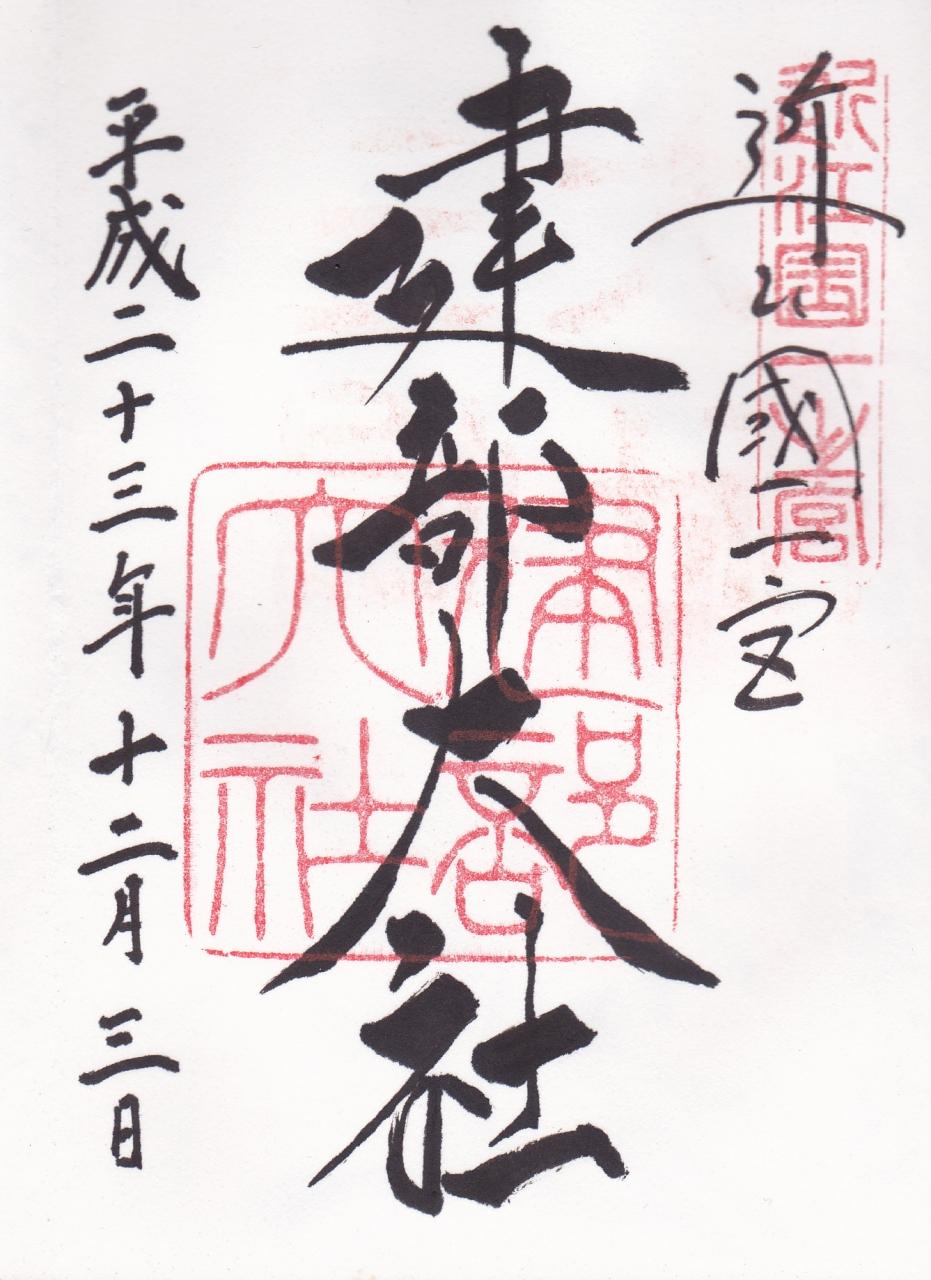 近江國一宮
近江國一之宮
建部大社
建部大社
平成二十三年十二月三日